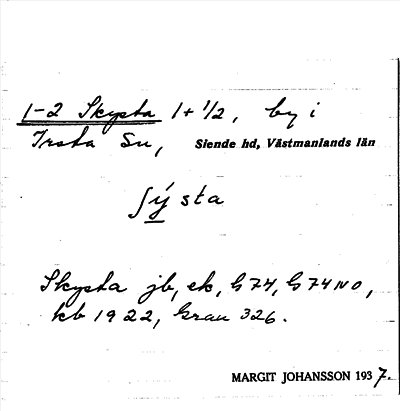 1-2 Skysta 1+1/2, by i
Irsta Sn, Siende hd, Västmanlands län
ʃý̲sta
Skysta jb, ek, G74, G74NO,
kb 1922, Grau 326.
MARGIT JOHANSSON 1937.